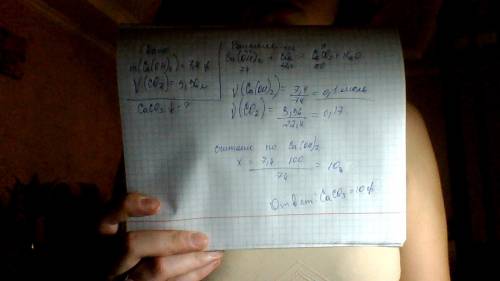 Дано:
m(Ca(OH)₂) = 7,4 г
V(CO₂) = 3,36 л
CaCO₃ г - ?
Решение
Ca(OH)₂ + CO₂ = CaCO₃ + H₂O
74
ν(Ca(OH)₂) = 7,4/74 = 0,1 моль
ν(CO₂) = 3,36/22,4 = 0,17
считаем по Ca(OH)₂
x = 7,4 100/74 = 10г
Ответ: CaCO₃ = 10 гр